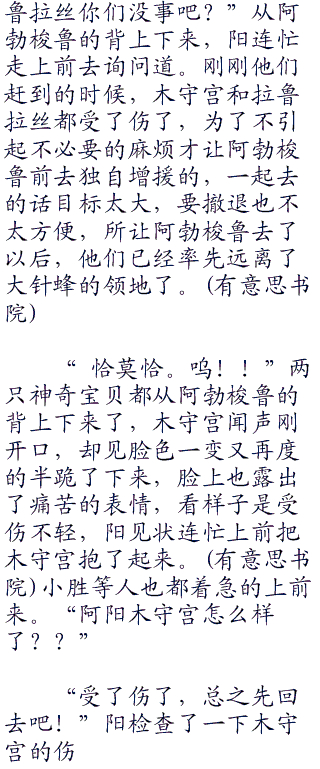 鲁拉丝你们没事吧？”从阿
勃梭鲁的背上下来，阳连忙
走上前去询问道。刚刚他们
赶到的时候，木守宫和拉鲁
拉丝都受了伤了，为了不引
起不必要的麻烦才让阿勃梭
鲁前去独自增援的，一起去
的话目标太大，要撤退也不
太方便，所让阿勃梭鲁去了
以后，他们已经率先远离了
大针蜂的领地了。(有意思书
院)
“ 恰莫恰。呜！！”两
只神奇宝贝都从阿勃梭鲁的
背上下来了，木守宫闻声刚
开口，却见脸色一变又再度
的半跪了下来，脸上也露出
了痛苦的表情，看样子是受
伤不轻，阳见状连忙上前把
木守宫抱了起来。(有意思书
院)小胜等人也都着急的上前
来。“阿阳木守宫怎么样
了？？”
“受了伤了，总之先回
去吧！”阳检查了一下木守
宫的伤